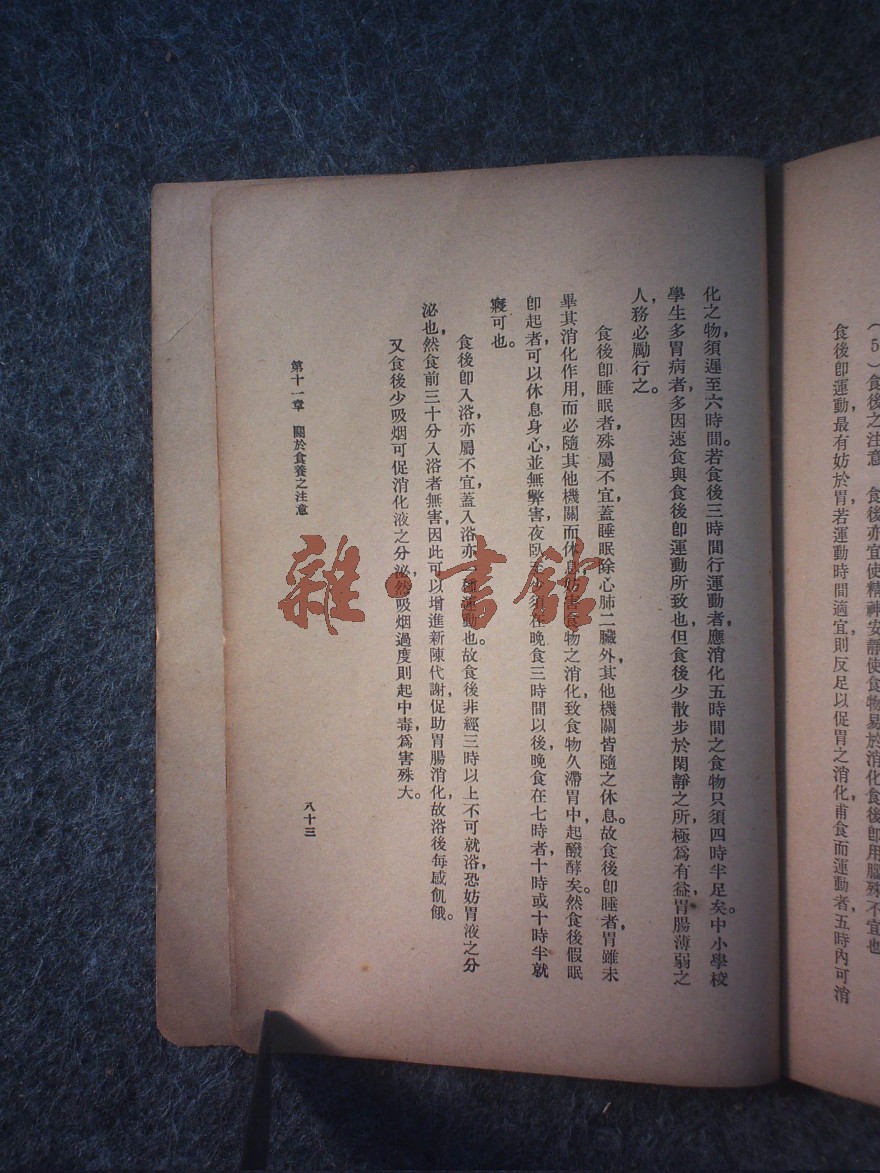 (5)食後之注意 食後亦宜使精神安靜使食物易於消化食後卽用腦殊不宜也
食後卽運動最有妨於胃若運動時間適宜則反足以促胃之消化甫食而運動者五時內可消
化之物須遲至六時間。若食後三時間行運動者，應消化五時間之食物只須四時半足矣。中小學校
學生多胃病者，多因速食與食後卽運動所致也，但食後少散步於閑靜之所，極爲有益，胃腸薄弱之
人，務必勵行之。
食後卽睡眠者，殊屬不宜，蓋睡眠除心肺二臟外，其他機關皆隨之休息。故食後卽睡者，胃雖未
畢其消化作用，而必隨其他機關而休息，妨害食物之消化，致食物久滯胃中，起醱酵矣。然食後假眠
卽起者，可以休息身心，並無弊害，夜臥至少須在晚食三時間以後，晚食在七時者，十時或十時半就
寢可也。
食後卽入浴，亦屬不宜，蓋入浴亦一種運動也。故食後非經三時以上不可就浴，恐妨胃液之分
泌也，然食前三十分入浴者無害，因此可以增進新陳代謝，促助胃腸消化，故浴後每感飢餓。
又食後少吸烟可促消化液之分泌，然吸烟過度則起中毒，爲害殊大。
第十一章 關於食養之注意
八十三
雜·書館